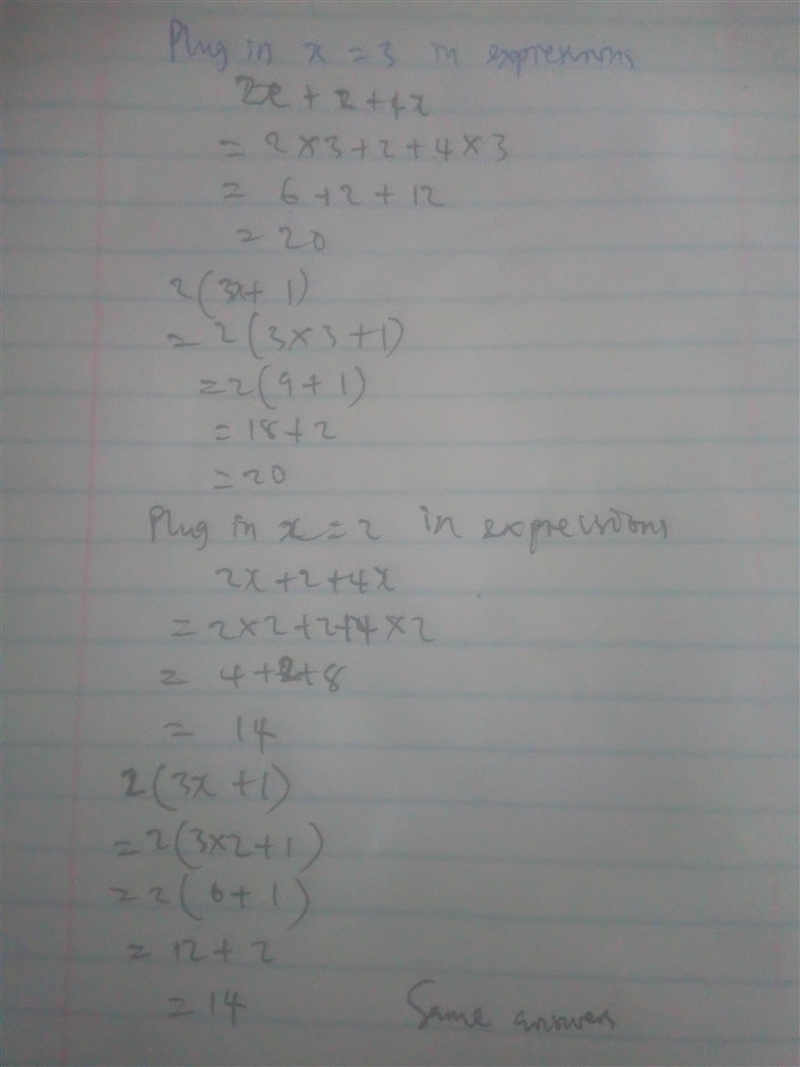 Plug in x = 3 in expressions
2x + 2 + 4x
= 2 × 3 + 2 + 4 × 3
= 6 + 2 + 12
= 20
2(3x + 1)
= 2(3 × 3 + 1)
= 2(9 + 1)
= 18 + 2
= 20
Plug in x = 2 in expressions
2x + 2 + 4x
= 2 × 2 + 2 + 4 × 2
= 4 + 2 + 8
= 14
2(3x + 1)
= 2(3 × 2 + 1)
= 2(6 + 1)
= 12 + 2
= 14 Same answers